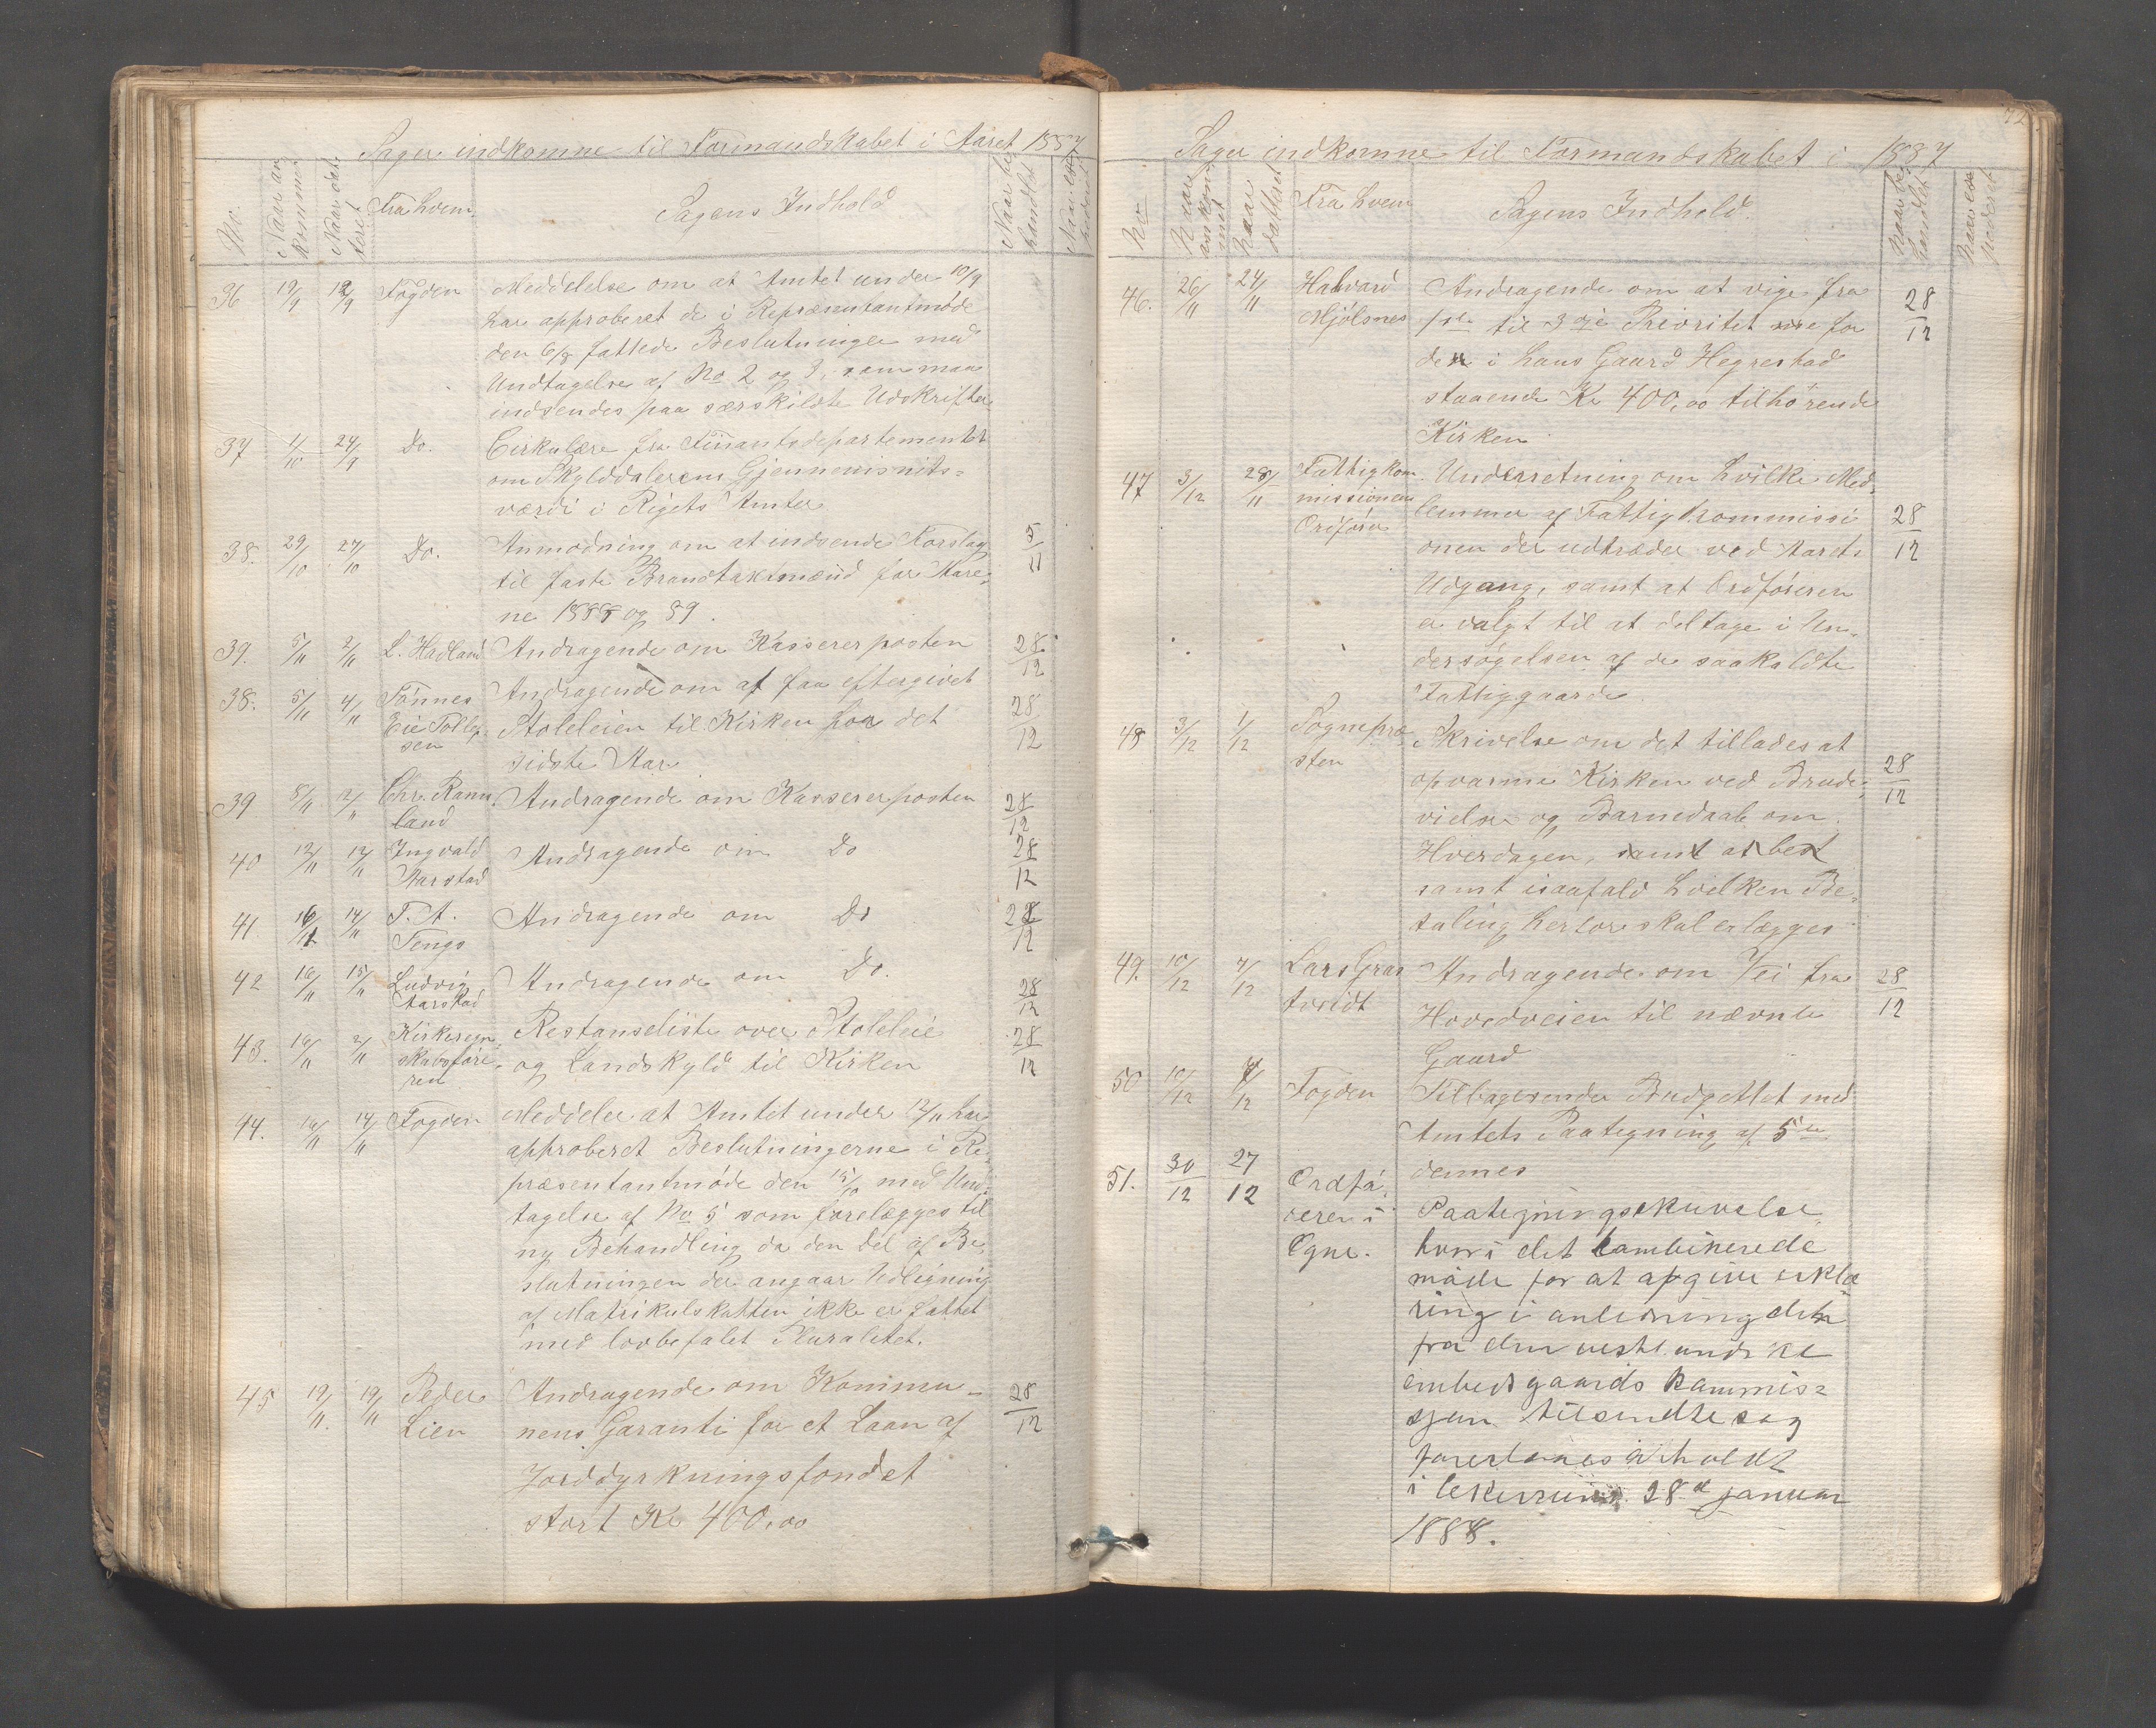 Sager indkomne til Formandskabet i Aaret 1887
No. Naar ankommet Naar dateret Fra hvem. Sagens Indhold Naar behandlet Naar expederet
36 19/9 12/9 Fogden Meddelelse om at Amtet under 10/9
har approberet de i Repræsentantmøde
den 6/8 fattede Beslutninger med
Undtagelse af No 2 og 3, som maa
indsendes paa særskildte Udskrifter
37 1/10 24/9 Do. Cirkulære fra Finantsdepartementet
om Skylddalerens Gjennemsnits-
værdi i Rigets Amter
38. 29/10 27/10 Do. Anmodning om at indsende Forslag 5/11
til faste Brandtaxtmænd for Aare-
ne 1888 og 89.
39. 5/11 2/11 L. Hadland Andragende om Kassererposten 28/12
38. 5/11 4/11 Tønnes Andragende om at faa eftergivet 28/12
Eie Tollef- Stoleleien til Kirken for det
sen sidste Aar
39 8/11 12/11 Chr. Rams- Andragende om Kassererposten 28/12
land
40 12/11 12/11 Ingvald Andragende om Do 28/12
Aarstad
41 16/11 14/11 T. A. Andragende om Do 28/12
Tengs
42 16/11 15/11 Ludvig Andragende om Do. 28/12
Aarstad
43. 16/11 2/11 Kirkeregn- Restanseliste over Stoleleie 28/12
skabsføre- og Landskyld til Kirken
ren
44. 16/11 14/11 Fogden Meddeler at Amtet under 12/11 har
approberet Beslutningerne i Re-
præsentantmøde den 15/10 med Und-
tagelse af No 5 som forelægges til
ny Behandling da den Del af Be-
slutningen der angaar Udligning
af Matrikulskatten ikke er fattet
med lovbefalet Pluralitet.
45 19/11. 19/11 Peder Andragende om Kommu- 28/12
Lien nens Garanti for et Laan af
Jorddyrkningsfondet
stort Kr 400,00
Sager indkomne til Formandskabet i 1887
No Naar ankommet Naar datteret Fra hvem Sagens Indhold. Naar behandlet Naar expederet
46. 26/11 24/11 Halvard Andragende om at vige fra 28/12
Mjølsnes 1ste til 3die Prioritet for
den i hans Gaard Hegrestad
staaende Kr 400,00 tilhørende
Kirken
47 3/12 28/11 Fattigkom- Underretning om hvilke Med-
missionens lemmer af Fattigkommissi- 28/12
Ordfører onen der udtræder ved Aarets
Udgang, samt at Ordføreren
er valgt til at deltage i Un-
dersøgelsen af de saakaldte
Fattiggaarde.
48 3/12 1/12 Sognepræ- Skrivelse om det tillades at
sten opvarme Kirken ved Brude- 28/12
vielse og Barnedaab om
Hverdagen, samt at bet
samt isaafald hvilken Be-
taling herfor skal erlægges
49. 10/12 7/12 Lars Gras- Andragende om Vei fra 28/12
tveidt Hovedveien til nævnte
Gaard
50 10/12 7/12 Fogden Tilbagesender Budgettet med
Amtets Paategning af 5te
dennes
51. 30/12 27/12 Ordfø- Paategningsskrivelse
reren i hvori det kombinerede
Ogne. møde for at afgive erklæ
ring i anledning den
fra den vestlandske
embedsgaards kommis-
sjon tilsendte sag
foreslaaes afholdt
i 28de januar
1888.